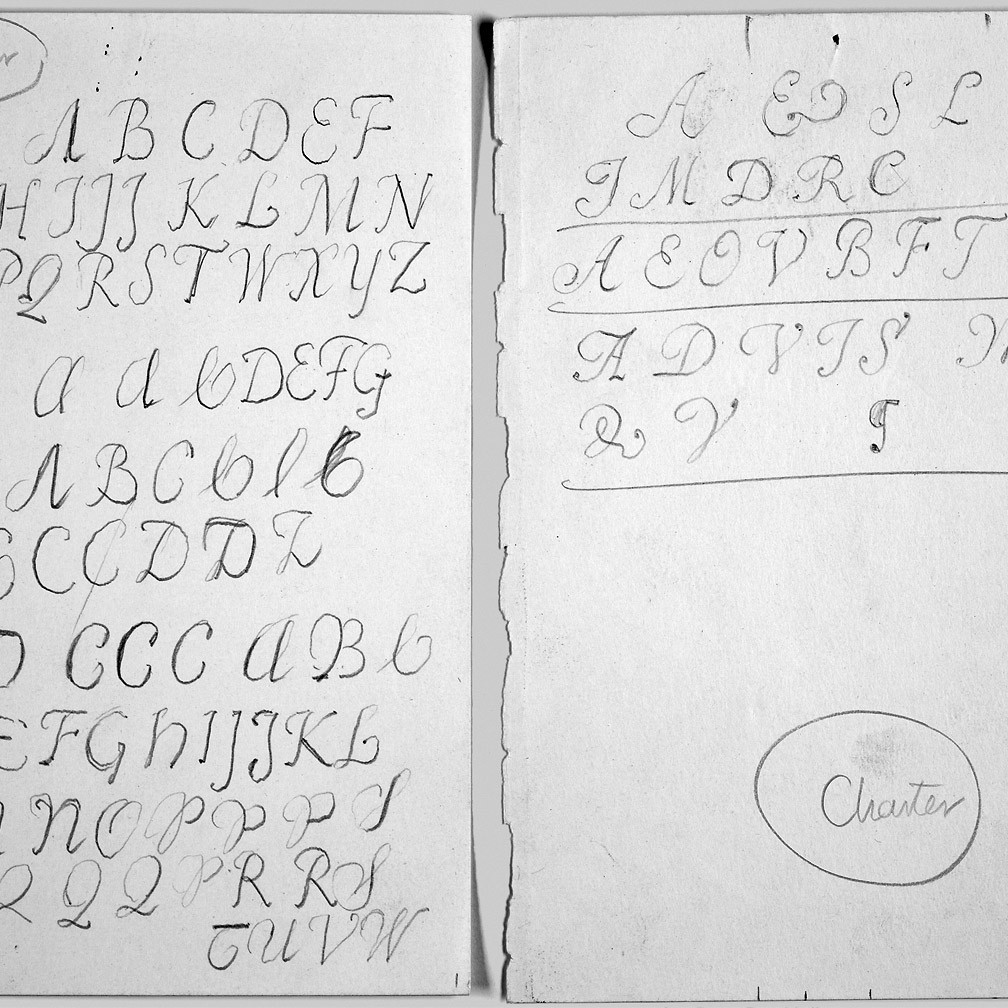 A B C D E F
H I J J K L M N
P Q R S T W X Y Z
a d b D E F G
A B C b l b
C C D D Z
D C C C a B b
E F G h I J J K L
N O P P P P S
Q Q Q P R R S
T U V W
A E D S L
J M D R C
A E O V B F T
A D V I S
Q V T
Charter